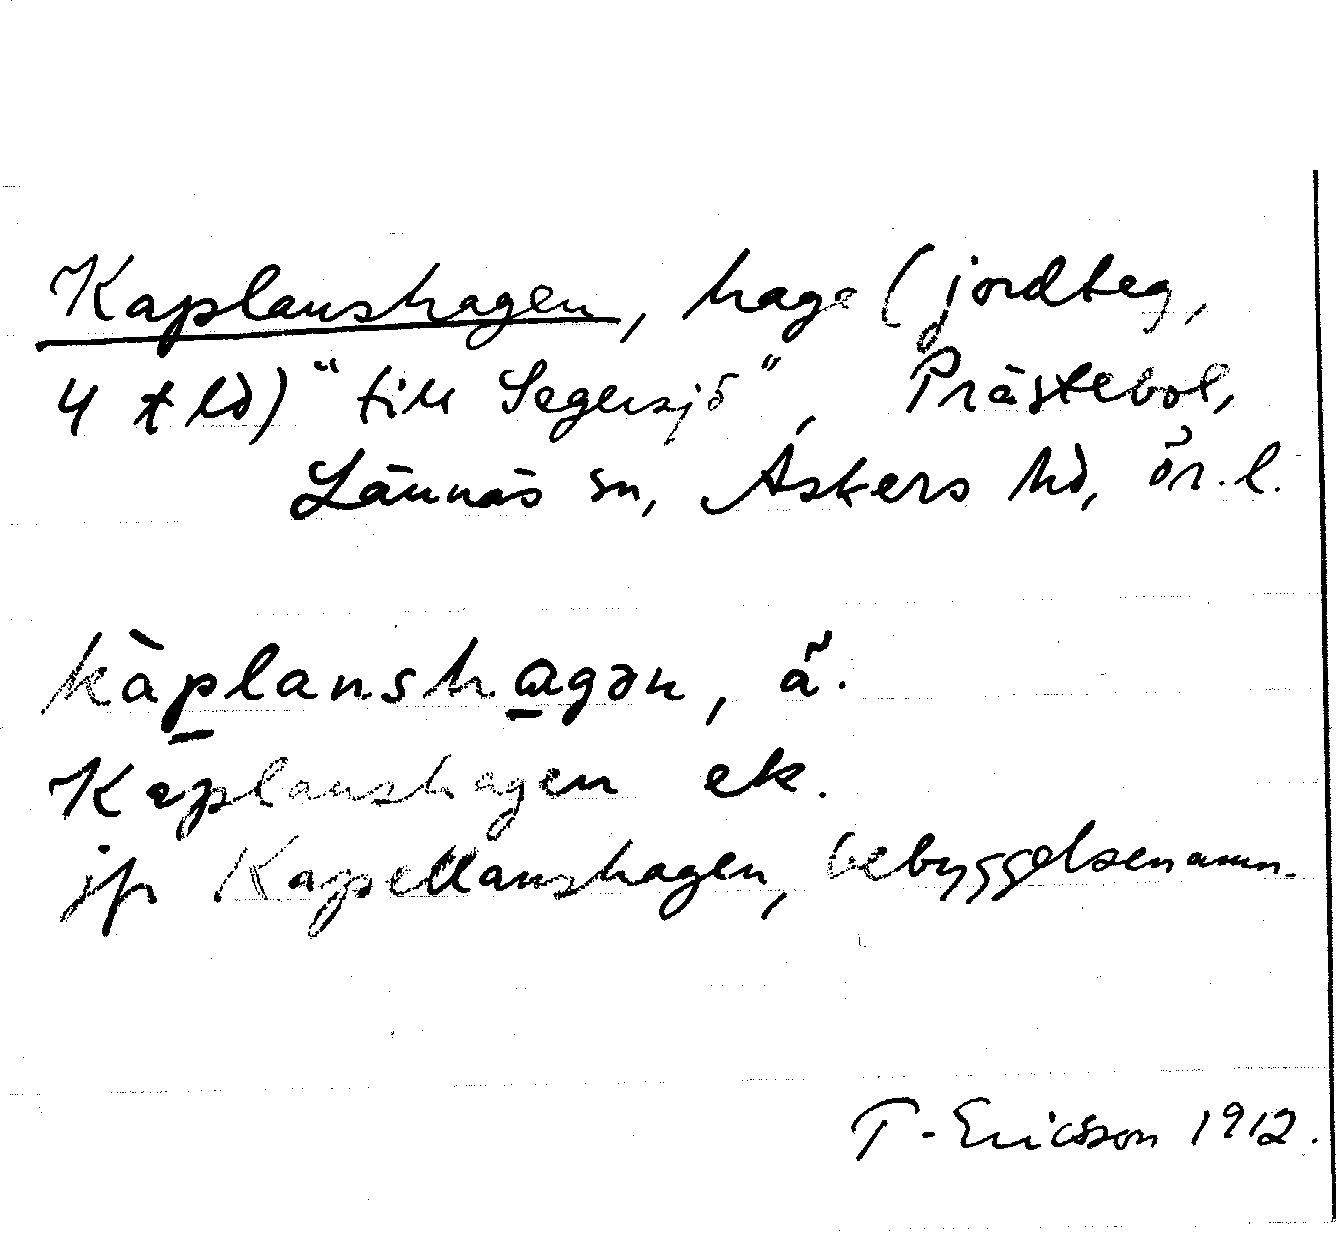 Kaplanshagen, hage (jordteg,
4 tld) "till Segersjö", Prästebol,
Lännäs sn, Askers hd, ör. l.
kàplanshagən, ã.
Kaplanshagen ek.
jfr Kapellanshagen, bebyggelsenamn.
T. Ericsson 1912.